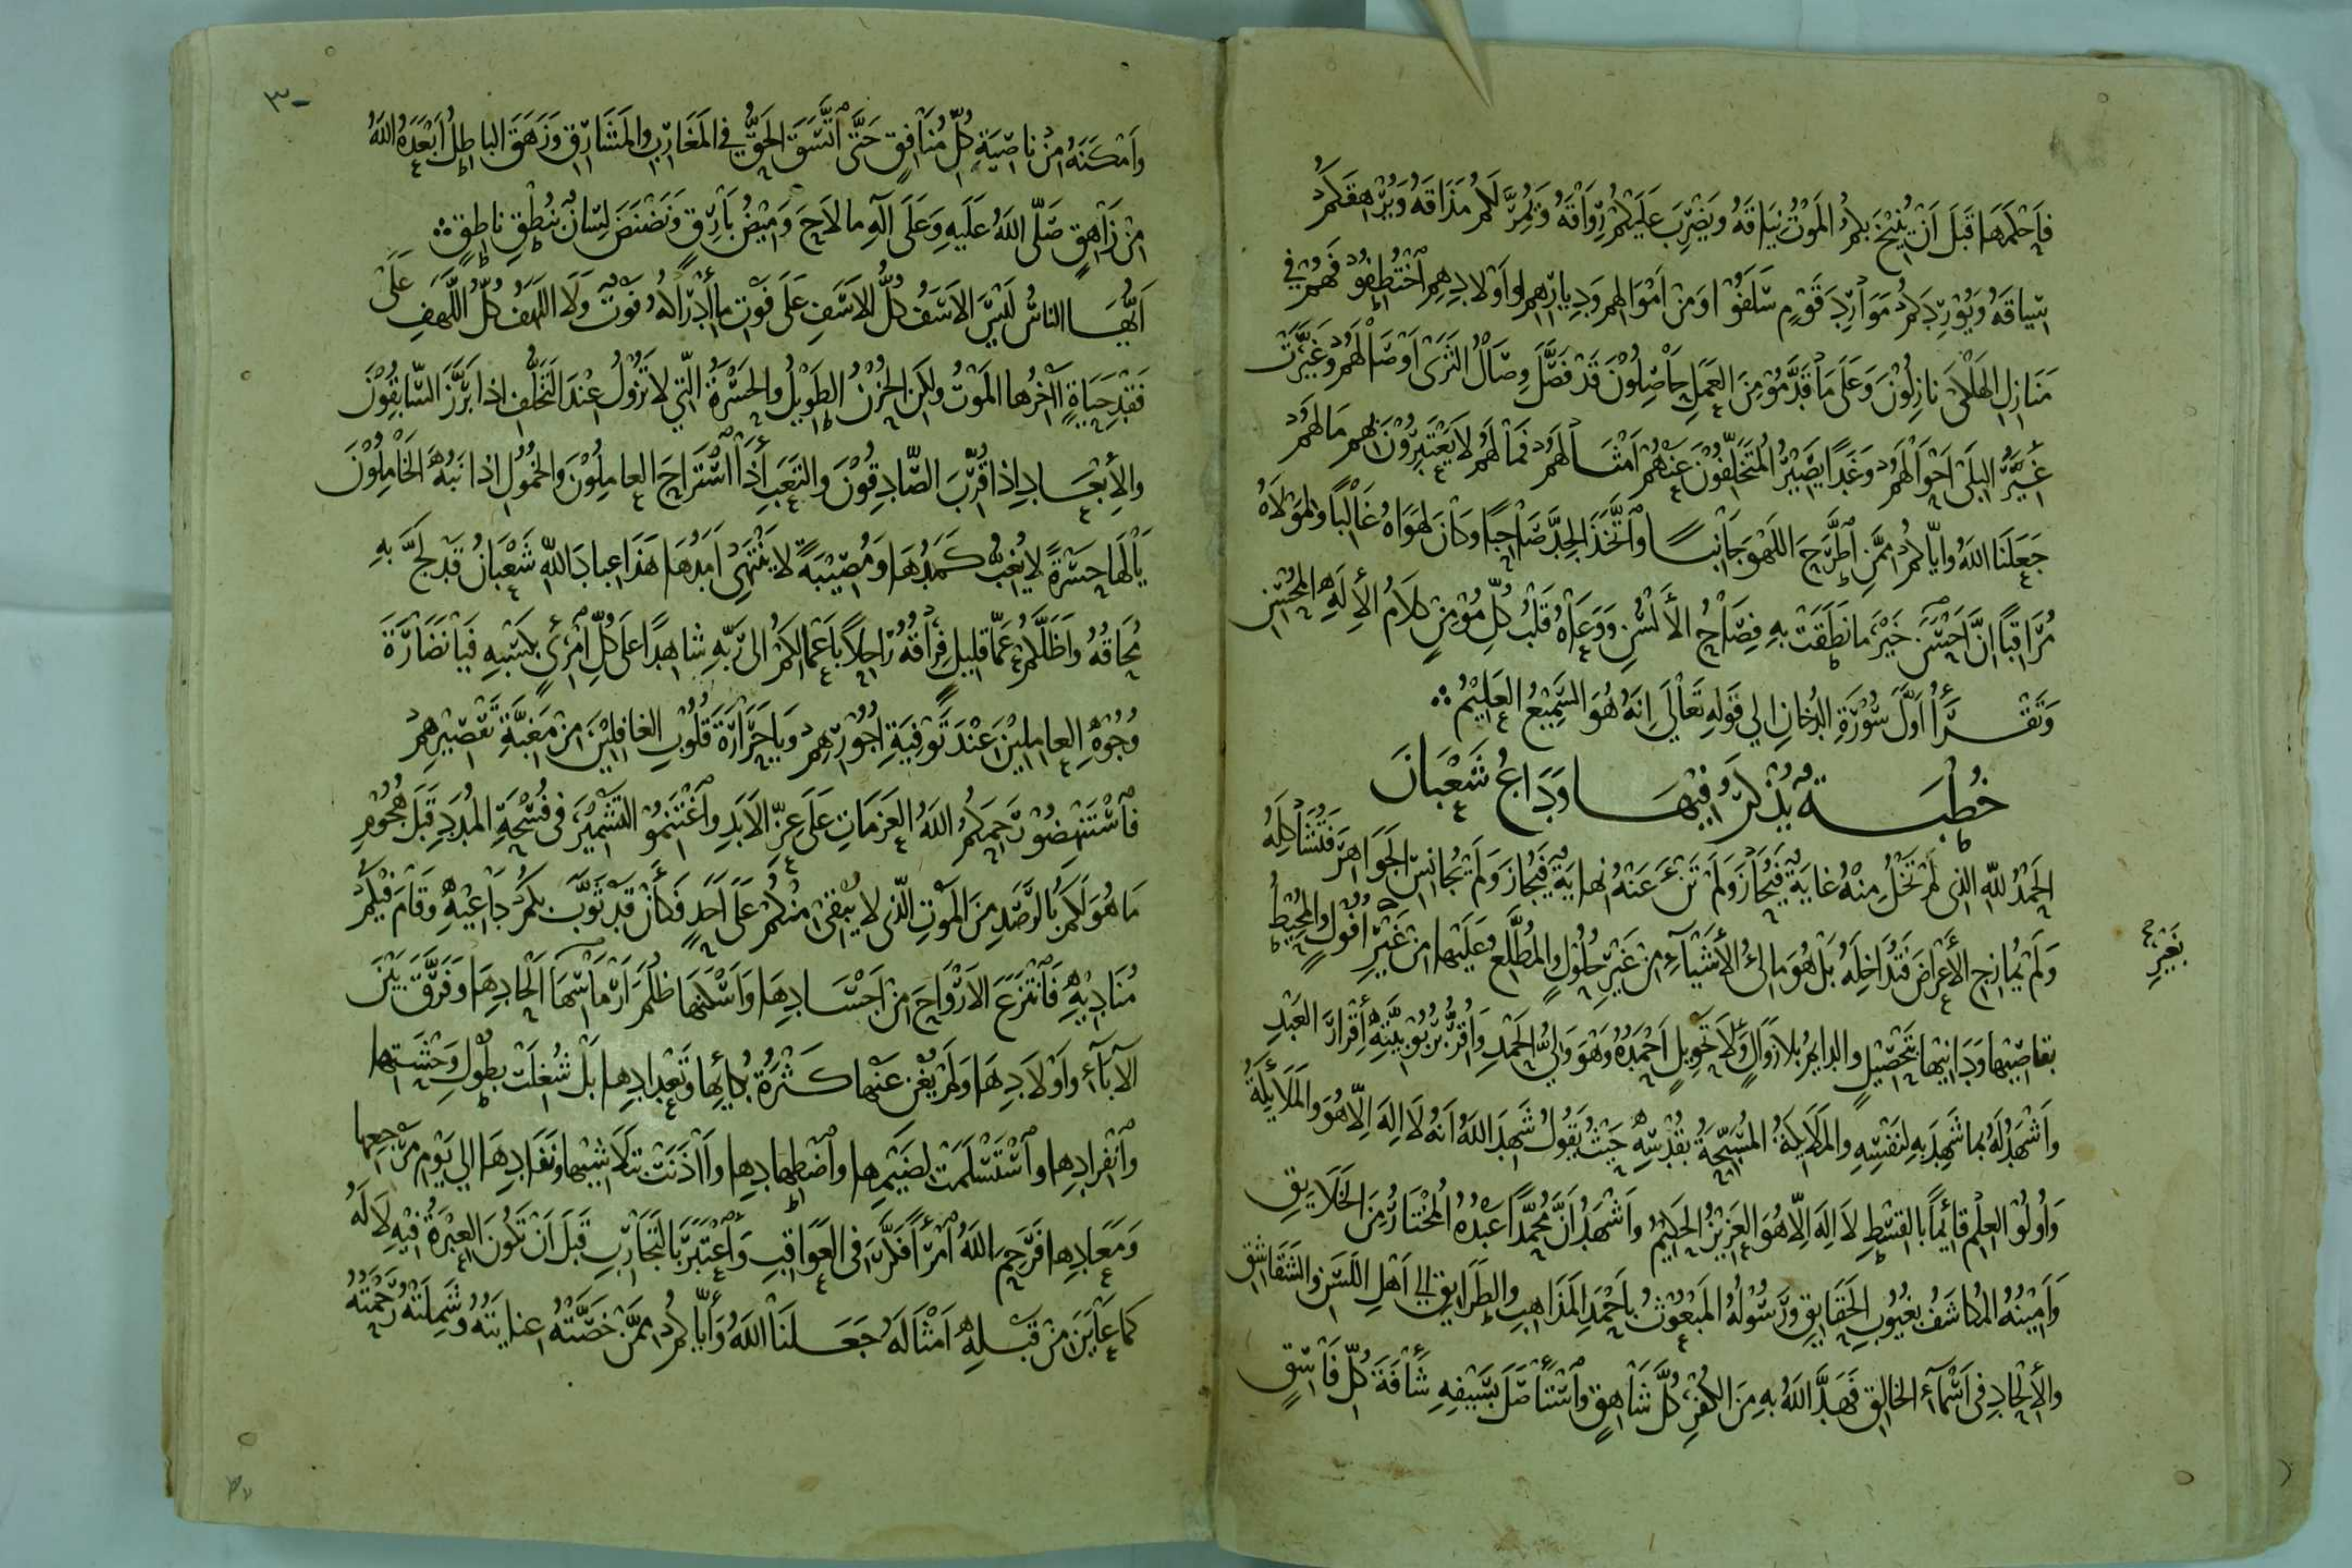 فَاَحْكَمَهَا قَبْلَ اَنْ يُنِيْخَ بِكُمُ الْمَوْتُ نِيَاقَهُ وَيَضْرِبَ عَلَيْكُمْ رِوَاقَهُ وَيُمِرَّ لَكُمْ مَذَاقَهُ وَيُرْهِقَكُمْ
سِيَاقَهُ وَيُوْرِدَكُمْ مَوَارِدَ قَوْمٍ سَلَفُوْا وَمِنْ اَمْوَالِهِمْ وَدِيَارِهِمْ وَاَوْلَادِهِمْ اخْتُطِفُوْا فَهُمْ فِي
مَنَازِلِ الْهَلْكَى نَازِلُوْنَ وَعَلَى مَا قَدَّمُوْا مِنَ الْعَمَلِ حَاصِلُوْنَ قَدْ فَصَّلَ وِصَالُ الثَّرَى اَوْصَالَهُمْ وَغَيَّرَتْ
غِيَرُ الْبِلَى اَحْوَالَهُمْ وَغَدًا يَصِيْرُ الْمُتَخَلِّفُوْنَ عَنْهُمْ اَمْثَالَهُمْ فَمَا لَهُمْ لَا يَعْتَبِرُوْنَ بِهِمْ مَا لَهُمْ
جَعَلَنَا اللهُ وَاِيَّاكُمْ مِمَّنِ اطَّرَحَ اللَّهْوَ جَانِبًا وَاتَّخَذَ الْجِدَّ صَاحِبًا وَكَانَ لِهَوَاهُ غَالِبًا وَلِمَوْلَاهُ
مُرَاقِبًا اِنَّ اَحْسَنَ خَيْرَ مَا نَطَقَتْ بِهِ فِصَاحُ الْأَلْسُنِ وَوَعَاهُ قَلْبُ كُلِّ مُوْمِنٍ كَلَامُ الْإِلٰهِ الْمُحْسِنِ
وَتَقْرَأُ اَوَّلَ سُوْرَةِ الدُّخَانِ اِلَى قَوْلِهِ تَعَالَى اِنَّهُ هُوَ السَّمِيْعُ الْعَلِيْمُ ؞
خُطْبَةٌ يُذْكَرُ فِيْهَا وَدَاعُ شَعْبَانَ
الْحَمْدُ لِلّهِ الَّذِي لَمْ تَخْلُ مِنْهُ غَايَةٌ فَيُحَازَ وَلَمْ تَنْءَ عَنْهُ نِهَايَةٌ فَيُجَازَ وَلَمْ يُجَانِسِ الْجَوَاهِرَ فَتُشَاكِلَهُ
وَلَمْ يُمَازِجِ الْأَعْرَاضَ فَتُدَاخِلَهُ بَلْ هُوَ مَالِئُ الْأَشْيَاءِ مِنْ غَيْرِ حُلُوْلٍ وَالْمُطَّلِعُ عَلَيْهَا مِنْ غَيْرِ اُفُوْلٍ وَالْمُحِيْطُ
بِغَيْرِ
بِقَاصِيْهَا وَدَانِيْهَا بِتَحْصِيْلٍ وَالدَّايِمُ بِلَا زَوَالٍ وَلَا تَحْوِيْلٍ اَحْمَدُهُ وَهُوَ وَلِيُّ الْحَمْدِ وَاُقِرُّ بِرُبُوْبِيَّتِهِ اِقْرَارَ الْعَبْدِ
وَاَشْهَدُ لَهُ بِمَا شَهِدَ بِهِ لِنَفْسِهِ وَالْمَلَايِكَةُ الْمُسَبِّحَةُ بِقُدْسِهِ حَيْثُ يَقُوْلُ شَهِدَ اللهُ اَنَّهُ لَا اِلهَ اِلَّا هُوَ وَالْمَلَايِكَةُ
وَاُولُوْا الْعِلْمِ قَائِمًا بِالْقِسْطِ لَا اِلَهَ اِلَّا هُوَ الْعَزِيْزُ الْحَكِيْمُ وَاَشْهَدُ اَنَّ مُحَمَّدًا عَبْدُهُ الْمُخْتَارُ مِنَ الْخَلَايِقِ
وَاَمِيْنُهُ الْمُكَاشَفُ بِغُيُوْبِ الْحَقَايِقِ وَرَسُوْلُهُ الْمَبْعُوْثُ بِاَحْمَدِ الْمَذَاهِبِ وَالطَّرَايِقِ اِلَى اَهْلِ اللَّسَنِ وَالشَّقَاشِقِ
وَالْإِلْحَادِ فِي اَسْمَآءِ الْخَالِقِ فَهَدَّ اللهُ بِهِ مِنَ الْكُفْرِ كُلَّ شَاهِقٍ وَاسْتَأْصَلَ بِسَيْفِهِ شَأْفَةَ كُلِّ فَاسِقٍ
٣٠
وَاَمْكَنَهُ مِنْ نَاصِيَةِ كُلِّ مُنَافِقٍ حَتَّى اتَّسَقَ الْحَقُّ فِي الْمَغَارِبِ وَالْمَشَارِقِ وَزَهَقَ الْبَاطِلُ اَبْعَدَهُ اللهُ
مِنْ زَاهِقٍ صَلَّى اللهُ عَلَيْهِ وَعَلَى آلِهِ مَا لَاحَ وَمِيْضُ بَارِقٍ وَنَضْنَضَ لِسَانٌ بِنُطْقِ نَاطِقٍ ؞
اَيُّهَا النَّاسُ لَيْسَ الْاَسَفُ كُلُّ الْاَسَفِ عَلَى فَوْتِ مَا اِدْرَاكُهُ فَوْتٌ وَلَا اللَّهَفُ كُلُّ اللَّهَفِ عَلَى
فَقْدِ حَيَاةٍ آخِرُهَا الْمَوْتُ وَلَكِنِ الْحُزْنُ الطَّوِيْلُ وَالْحَسْرَةُ الَّتِي لَا تَزُوْلُ عِنْدَ التَّخَلُّفِ اِذَا بَرَّزَ السَّابِقُوْنَ
وَالْإِبْعَادِ اِذَا قُرِّبَ الصَّادِقُوْنَ وَالتَّعَبِ اِذَا اسْتَرَاحَ الْعَامِلُوْنَ وَالْخُمُوْلِ اِذَا نَبُهَ الْخَامِلُوْنَ
يَا لَهَا حَسْرَةً لَا يُغِبُّ كَمَدُهَا وَمُصِيْبَةً لَا يَنْتَهِي اَمَدُهَا هَذَا عِبَادَ اللهِ شَعْبَانُ قَدْ لَجَّ بِهِ
مُحَاقُهُ وَاَظَلَّكُمْ عَمَّا قَلِيلٍ فِرَاقُهُ رَاحِلًا بِاَعْمَالِكُمْ اِلَى رَبِّهِ شَاهِدًا عَلَى كُلِّ امْرِئٍ بِكَسْبِهِ فَيَا نَضَارَةَ
وُجُوْهِ الْعَامِلِيْنَ عِنْدَ تَوْفِيَةِ اُجُوْرِهِمْ وَيَا حَزَازَةَ قُلُوْبِ الْغَافِلِيْنَ مِنْ مَغَبَّةِ تَقْصِيْرِهِمْ
فَاسْتَنْهِضُوْا رَحِمَكُمُ اللهُ الْعَزَمَاتِ عَلَى عِزِّ الْاَبَدِ وَاغْتَنِمُوْا التَّشْمِيْرَ فِي فُسْحَةِ الْمُدَدِ قَبْلَ هُجُوْمِ
مَا هُوَ لَكُمْ بِالرَّصَدِ مِنَ الْمَوْتِ الَّذِي لَا يُبْقِي مِنْكُمْ عَلَى اَحَدٍ فَكَأَنْ قَدْ ثَوَّبَ بِكُمْ دَاعِيْهِ وَقَامَ فِيْكُمْ
مُنَادِيْهِ فَانْتَزَعَ الْاَرْوَاحَ مِنْ اَجْسَادِهَا وَاَسْكَنَهَا ظُلَمَ اَرْمَاسِهَا اَلْحَادِهَا وَفَرَّقَ بَيْنَ
الْآبَآءِ وَاَوْلَادِهَا وَلَمْ يُغْنِ عَنْهَا كَثْرَةُ بُكَائِهَا وَتَعْدَادِهَا بَلْ شُغِلَتْ بِطُوْلِ وَحْشَتِهَا
وَانْفِرَادِهَا وَاسْتَسْلَمَتْ لِضَيْمِهَا وَاضْطِهَادِهَا وَآذَنَتْ بِتَلَاشِيْهَا وَنَفَادِهَا اِلَى يَوْمِ مَرْجِعِهَا
وَمَعَادِهَا فَرَحِمَ اللهُ امْرَأً فَكَّرَ فِي الْعَوَاقِبِ وَاعْتَبَرَ بِالتَّجَارِبِ قَبْلَ اَنْ تَكُوْنَ الْعِبْرَةُ فِيْهِ لَا لَهُ
كَمَا عَايَنَ مِنْ قَبْلِهِ اَمْثَالَهُ جَعَلَنَا اللهُ وَاِيَّاكُمْ مِمَّنْ خَصَّتْهُ عِنَايَتُهُ وَشَمِلَتْهُ رَحْمَتُهُ